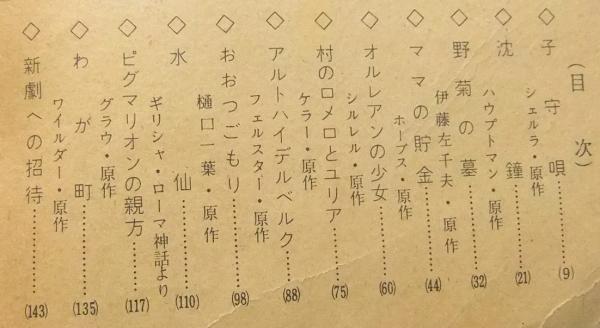 （目次）
◇子守唄……(9)
シェルラ・原作
◇沈鐘……(21)
ハウプトマン・原作
◇野菊の墓……(32)
伊藤左千夫・原作
◇ママの貯金……(44)
ホーブス・原作
◇オルレアンの少女……(60)
シルレル・原作
◇村のロメロとユリア……(75)
ケラー・原作
◇アルトハイデルベルク……(88)
フェルスター・原作
◇おおつごもり……(98)
樋口一葉・原作
◇水仙……(110)
ギリシャ・ローマ神話より
◇ピグマリオンの親方……(117)
グラウ・原作
◇わが町……(135)
ワイルダー・原作
◇新劇への招待……(143)